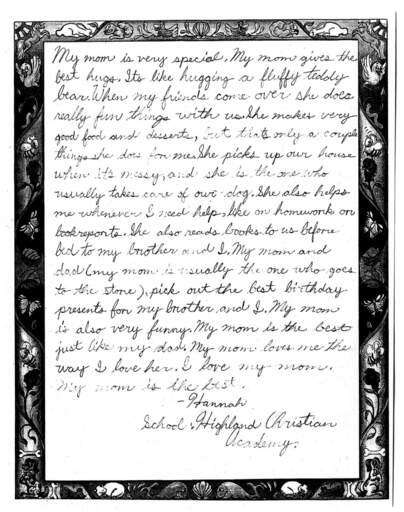 My mom is very special. My mom gives the
best hugs. Its like hugging a fluffy teddy
bear. When my friends come over she does
really fun things with us. She makes very
good food and desserts, but thats only a couple
things she does for me. She picks up our house
when it's messy, and she is the one who
usually takes care of our dog. She also helps
me whenever I need help, like on homework or
bookreports. She also reads books to us before
bed to my brother and I. My mom and
dad (my mom is usually the one who goes
to the store), pick out the best birthday
presents for my brother and I. My mom
is also very funny. My mom is the best
just like my dad. My mom loves me the
way I love her. I love my mom.
My mom is the best.
-Hannah
School: Highland Christian
Academy.